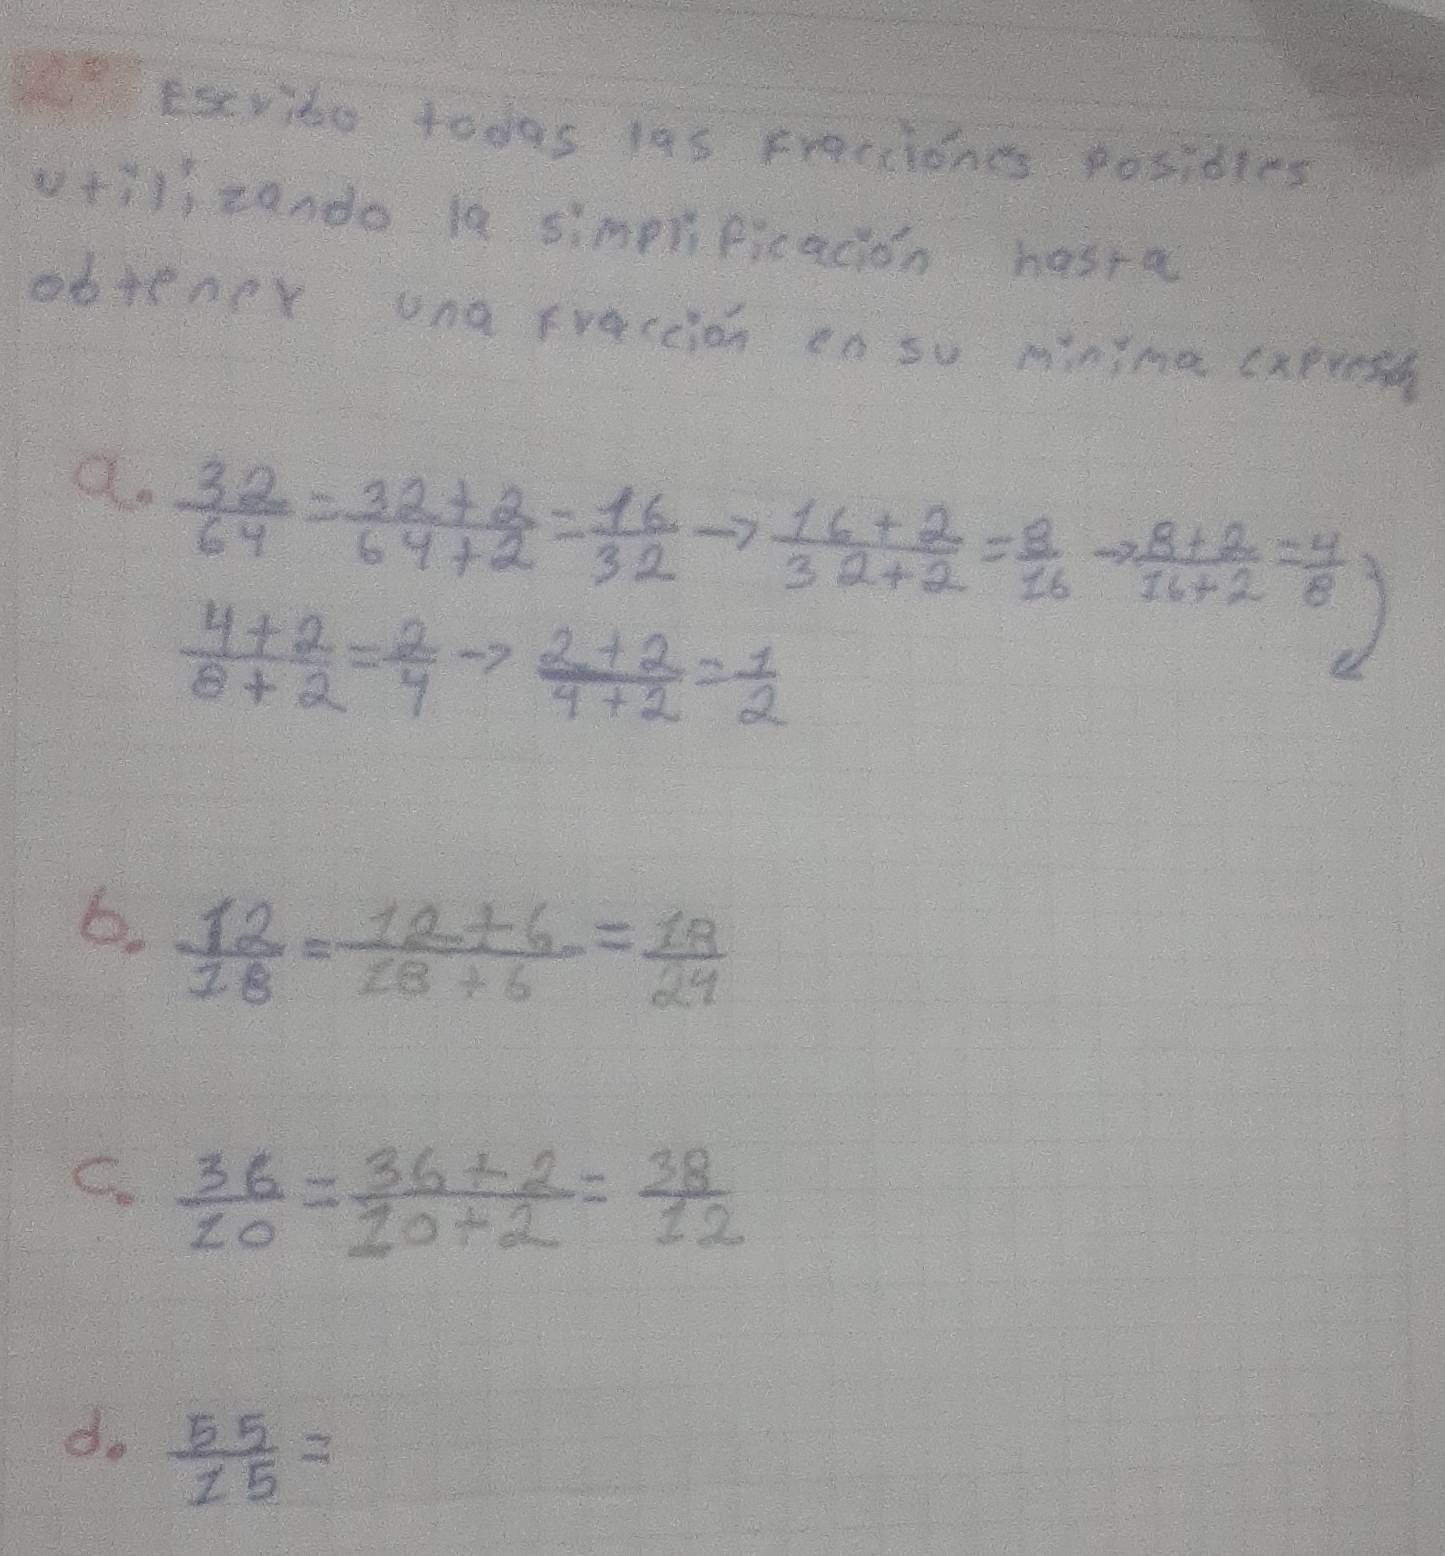 2° Escribo todas las fracciónes posibles
utilizando la simplificación hasta
obtener una fracción en su minima expresión
a. 32/64 = 32+2/64+2 = 16/32 → 16+2/32+2 = 8/16 → 8+2/16+2 = 4/8
4+2/8+2 = 2/4 → 2+2/4+2 = 1/2
b. 12/18 = 12+6/18+6 = 18/24
c. 36/10 = 36+2/10+2 = 38/12
d. 55/15 =